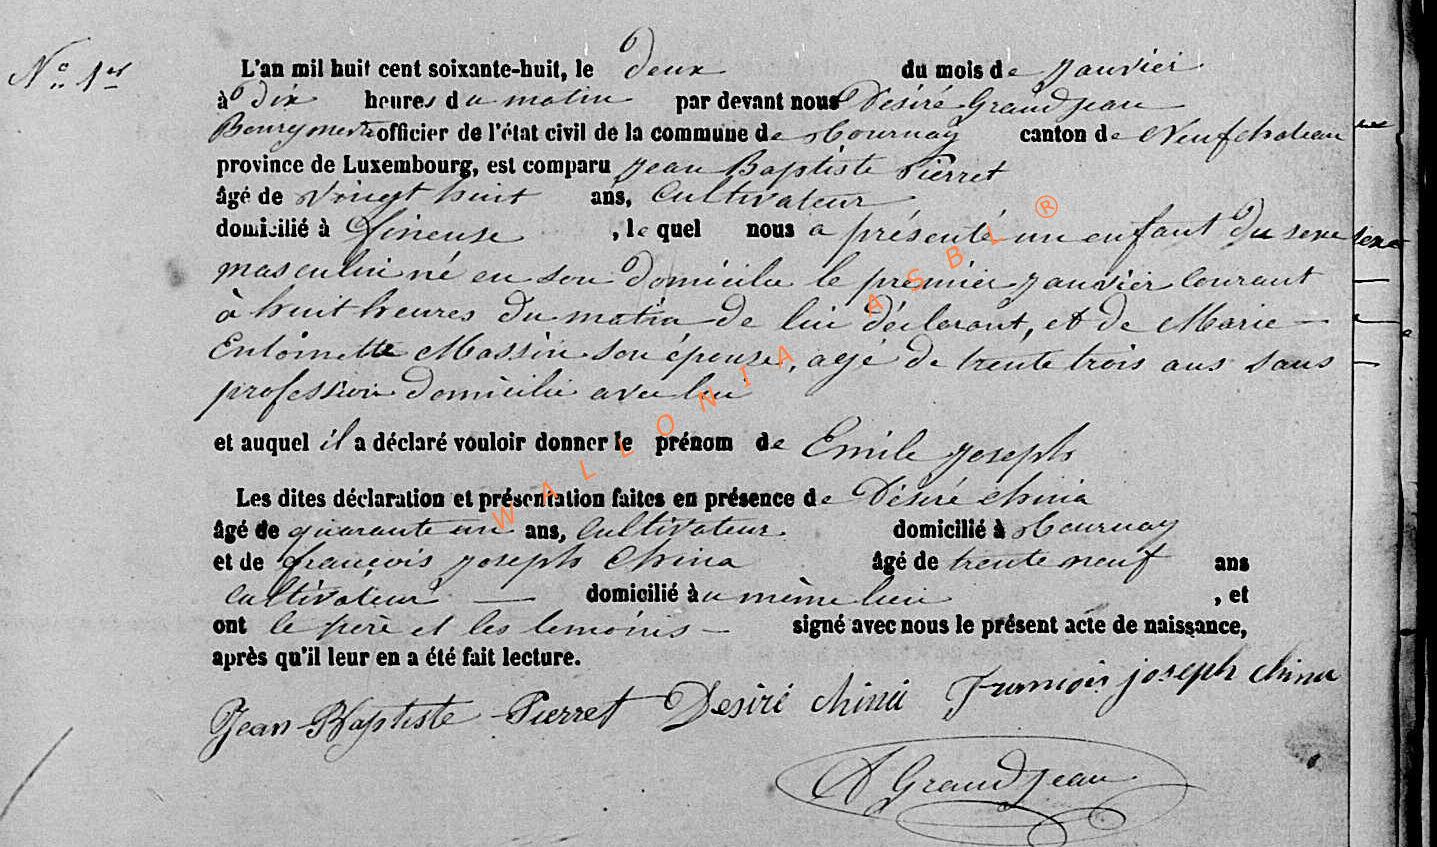 N° 1er
L'an mil huit cent soixante-huit, le deux du mois de janvier
à dix heures du matin par devant nous Désiré Grandjean
Bourgmestre officier de l'état civil de la commune de Tournay canton de Neufchateau
province de Luxembourg, est comparu Jean Baptiste Pierret
âgé de vingt huit ans, cultivateur
domicilié à Lineuse, lequel nous a présenté un enfant du sexe
masculin né en son domicile le premier janvier courant
à huit heures du matin de lui déclarant, et de Marie
Entoinette Massin son épouse, agé de trente trois ans sans
profession domicilié avec lui
et auquel il a déclaré vouloir donner le prénom de Emile Joseph
Les dites déclaration et présentation faites en présence de Désiré China
âgé de quarante un ans, cultivateur domicilié à Tournay
et de françois joseph China âgé de trente neuf ans
cultivateur domicilié au même lieu, et
ont le père et les temoins signé avec nous le présent acte de naissance,
après qu'il leur en a été fait lecture.
Jean-Baptiste Pierret Desiré China François joseph China
D Grandjean
WALLONIA ASBL ®